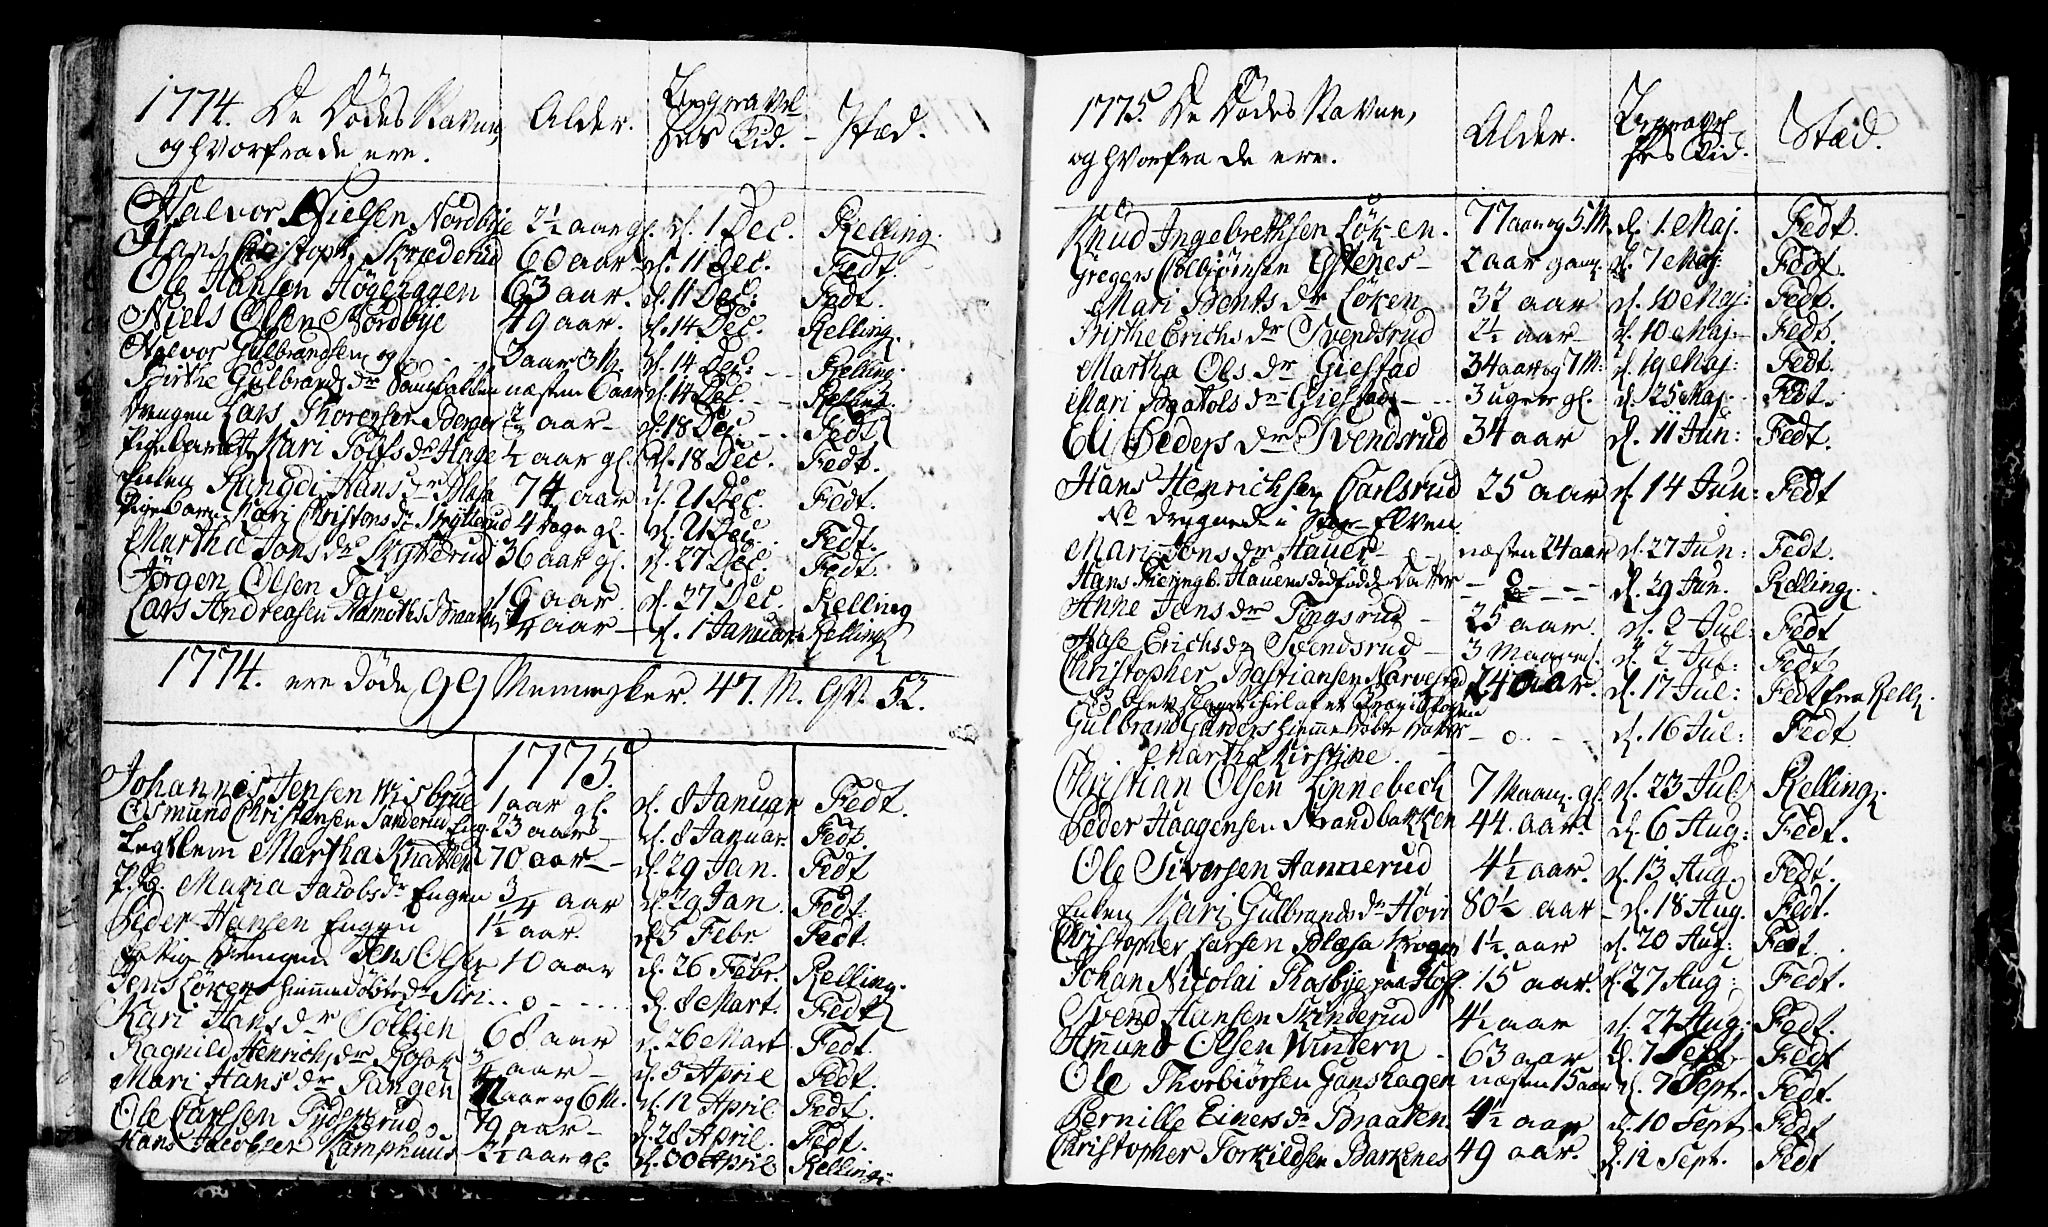 1774. De Dødes Navne, Alder. Begravel- Stæd.
og hvorfra de ere. ses Tid.
Halvor Nielsen Nordbye 2½ aar gl. d. 1 Dec. Relling.
Hans Christoph. Skræderud 60 aar d. 11 Dec. Fedt.
Ole Hansen Høgehagen 63 aar. d. 11 Dec. Fedt.
Niels Olsen Nordbye 49 aar. d. 14 Dec. Relling.
Halvor Gulbrandsen og 3 aar 3 M. d. 14 Dec. Relling.
Birthe Gulbrands dr næsten 6 aar d. 14 Dec. Relling.
Drengen Lars Thoresen Berger aar d. 18 Dec. Fedt
Pigebarnet Kari Rolfs dr Hage ½ aar gl. d. 18 Dec. Fedt.
Enken Rangdi Hans dr 74 aar d. 21 Dec. Fedt.
Pigebarn Kari Christens dr Skytterud 4 dage gl. d. 21 Dec. Fedt.
Martha Jons dr Skytterud 36 aar gl. d. 27 Dec. Fedt.
Jørgen Olsen 16 aar d. 27 Dec. Relling
Lars Andreasen Braaten ¼ aar d. 1 Januar Relling
1774. ere døde 99 Mennesker. 47. M. Qv. 52.
1775.
Johannes Jensen Wisbrue 1 aar gl. d. 8 Januar Fedt.
Osmund Christensen Sanderud Eng. 23 aar d. 8 Januar Fedt.
Legdlem Martha Knatten 70 aar d. 29 Jan. Fedt
P. B. Maria Jacobs dr Engen ¾ aar d. 29 Jan. Fedt.
Peder Hansen Engen 1½ aar. d. 5 Febr. Fedt.
Fattig Drengen Jens Olsen 10 aar d. 26 Febr. Relling.
Jens Løken hiemmedøbte dr Siri o d. 8 Mart. Fedt
Kari Hans dr Sollien 68 aar d. 26 Mart Fedt.
Ragnild Henrichs dr ¾ aar d. 5 April Fedt.
Mari Hans dr Tangen aar og 6 M. d. 12 April Fedt.
Ole Carlsen 79 aar d. 28 April. Fedt.
Hans Jacobsen Kamphuus 2½ aar gl. d. 30 April Relling.
1775. De Dødes Navne, Alder. Begravel- Stæd.
og hvorfra de ere. ses Tid.
Knud Ingebrethsen Løken. 77 aar og 5. M. d. 1. Maj. Fedt.
Gregers Colbiørnsen Estenes 2 aar gam. d. 7 Maj: Fedt.
Mari Bents dr Løken 37 aar d. 10 Maj: Fedt.
Birthe Erichs dr Svendsrud 2½ aar d. 10 Maj Fedt.
Martha Ols dr Giestad 34 aar og 7 M: d. 19 Maj: Fedt.
Mari dr Giestad 3 uger gl. d. 25 Maj Fedt.
Eli Peders dr Svendsrud 34 aar d. 11 Jun: Fedt.
Hans Henrichsen Carlsrud 25 aar d. 14 Jun: Fedt
NB druknede i Elven.
Mari Jons dr Hauer næsten 24 aar d. 27 Jun: Fedt.
Hans Hauers dødfødde Datter o d. 29 Jun. Relling.
Anne Jens dr Tingsrud 25 aar. d. 2 Jul: Fedt
Aase Erichs dr Svendsrud 3 Maan. d. 2 Jul: Fedt
Christopher Bastiansen Narvestad 24 aar. d. 17 Jul: Fedt fra Rell.
NB blev slaget ihiel af et
Gulbrand Garders hiemmedøbte Datter o d. 16 Jul: Fedt
Martha Kirstine.
Christian Olsen Linnebech 7 Maan. gl. d. 23 Jul Relling.
Peder Haagensen Strandbakken 44. aar d. 6 Aug: Fedt.
Ole Siversen Hannerud 4½ aar. d. 13 Aug. Fedt.
Enken Kari Gulbrands dr Høvi 80½ aar d. 18 Aug. Fedt.
Christopher Larsen Blæsa Krogen 1½ aar d. 20 Aug: Fedt.
Johan Nicolai Thosbye paa Hof 15 aar. d. 27 Aug: Fedt.
Svend Hansen Skinderud 4½ aar d. 27 Aug: Fedt.
Amund Olsen Wintern 63 aar. d. 7 Sept. Fedt
Ole Thorbiørsen Ganshagen næsten 15 aar d. 7 Sept. Fedt.
Pernille Einers dr Braaten 4½ aar d. 10 Sept. Fedt
Christopher Torkildsen Barkenes 49 aar. d. 12 Sept. Fedt